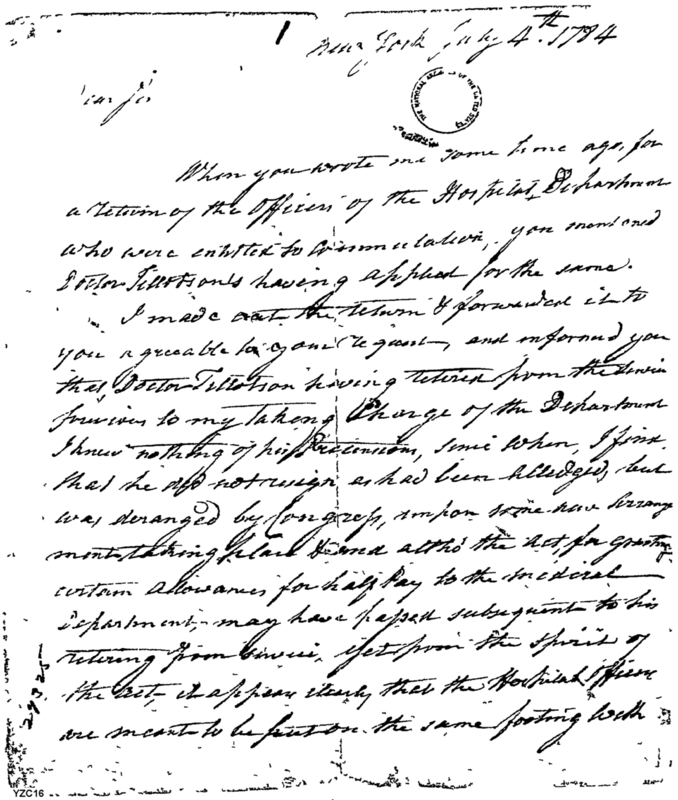 New York July 4th. 1784
Dear Sir
THE NATIONAL ARCHIVES OF THE UNITED STATES
When you wrote me some time ago, for
a return of the Officers of the Hospital Department
who were entitled to Commutation, you mentioned
Doctor Tillotson's having applied for the same.
I made out the return & forwarded it to
you agreeable to your request, and informed you
that Doctor Tillotson having retired from the Service
previous to my taking Charge of the Department
I knew nothing of his Pretensions, since when, I find
that he did not resign as had been alledged, but
was deranged by Congress, upon some new Arrange
ments taking place & and altho' the Act, for granting
certain Allowances for half Pay to the medical
Department, may have passed subsequent to his
retiring from service, yet from the spirit of
the act, it appears clearly that the Hospital Officers
are meant to be put on the same footing with
2932
YZC16